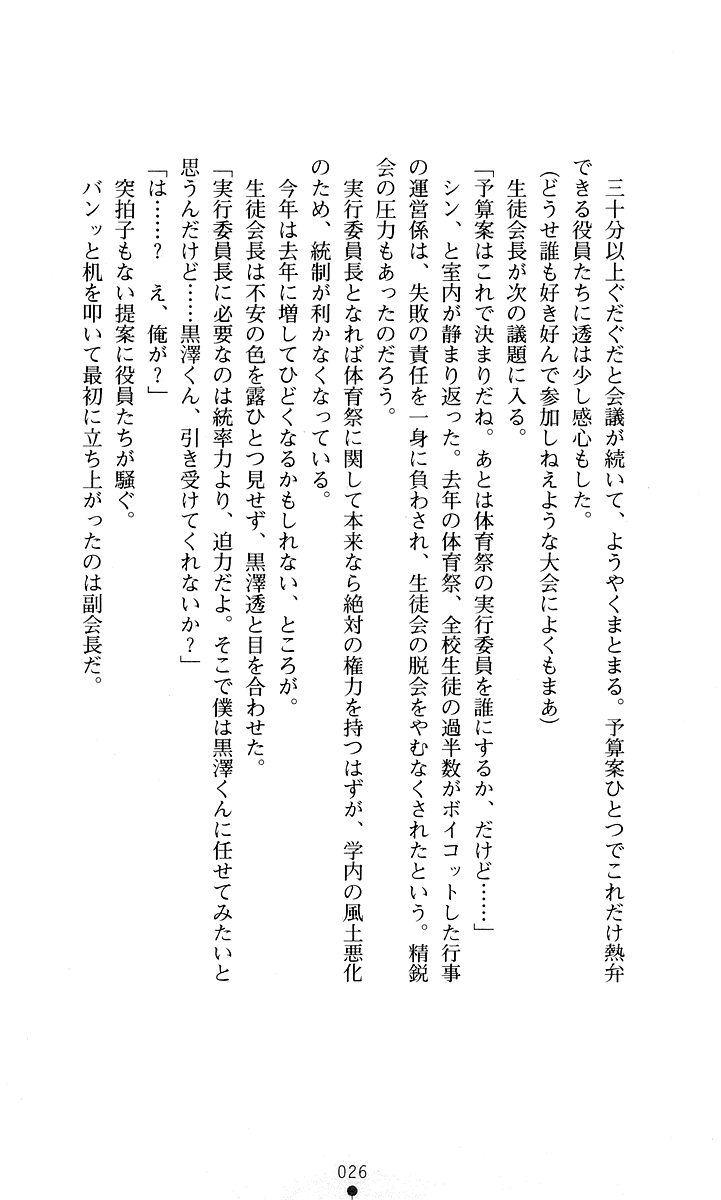 三十分以上ぐだぐだと会議が続いて、ようやくまとまる。予算案ひとつでこれだけ熱弁
できる役員たちに透は少し感心もした。
(どうせ誰も好き好んで参加しねえような大会によくもまあ)
生徒会長が次の議題に入る。
「予算案はこれで決まりだね。あとは体育祭の実行委員を誰にするか、だけど……」
シン、と室内が静まり返った。去年の体育祭、全校生徒の過半数がボイコットした行事
の運営係は、失敗の責任を一身に負わされ、生徒会の脱会をやむなくされたという。精鋭
会の圧力もあったのだろう。
実行委員長となれば体育祭に関して本来なら絶対の権力を持つはずが、学内の風土悪化
のため、統制が利かなくなっている。
今年は去年に増してひどくなるかもしれない、ところが。
生徒会長は不安の色を露ひとつ見せず、黒澤透と目を合わせた。
「実行委員長に必要なのは統率力より、迫力だよ。そこで僕は黒澤くんに任せてみたいと
思うんだけど……黒澤くん、引き受けてくれないか？」
「は……？　え、俺が？」
突拍子もない提案に役員たちが騒ぐ。
バンッと机を叩いて最初に立ち上がったのは副会長だ。
026